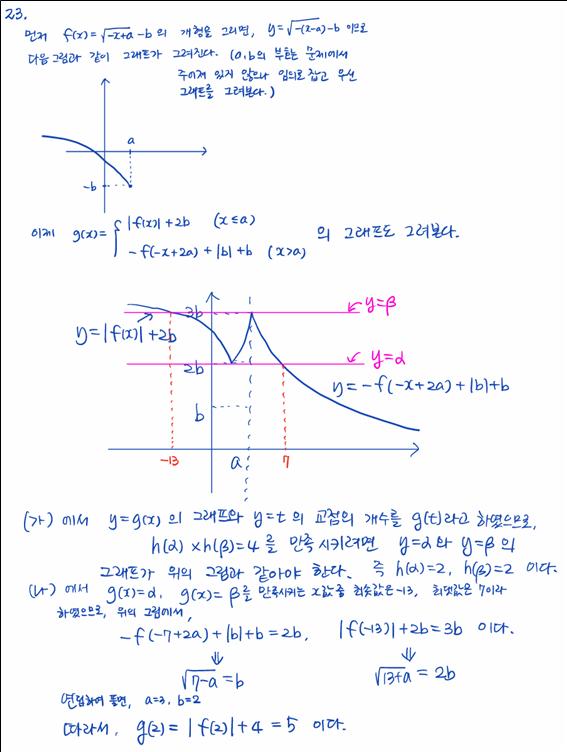 23.
먼저 f(x)=√(-x+a)-b 의 개형을 그리면, y=√(-(x-a))-b 이므로
다음 그림과 같이 그래프가 그려진다. (a,b의 부호는 문제에서
주어져 있지 않으나 임의로 잡고 우선
그래프를 그려본다.)
a
-b
이제 g(x)= { |f(x)|+2b (x≤a)
-f(-x+2a)+|b|+b (x>a)
의 그래프도 그려본다.
3b
y=β
y=|f(x)|+2b
y=α
2b
y=-f(-x+2a)+|b|+b
b
-13 a 7
(가) 에서 y=g(x) 의 그래프와 y=t 의 교점의 개수를 g(t)라고 하였으므로,
h(α)×h(β)=4 를 만족시키려면 y=α 와 y=β 의
그래프가 위의 그림과 같아야 한다. 즉 h(α)=2, h(β)=2 이다.
(나) 에서 g(x)=α, g(x)=β를 만족시키는 x값 중 최솟값은 -13, 최댓값은 7이라
하였으므로, 위의 그림에서,
-f(-7+2a)+|b|+b=2b, |f(-13)|+2b=3b 이다.
⇓ ⇓
√(7-a)=b √(13+a)=2b
연립하여 풀면, a=3, b=2
따라서, g(2)=|f(2)|+4=5 이다.